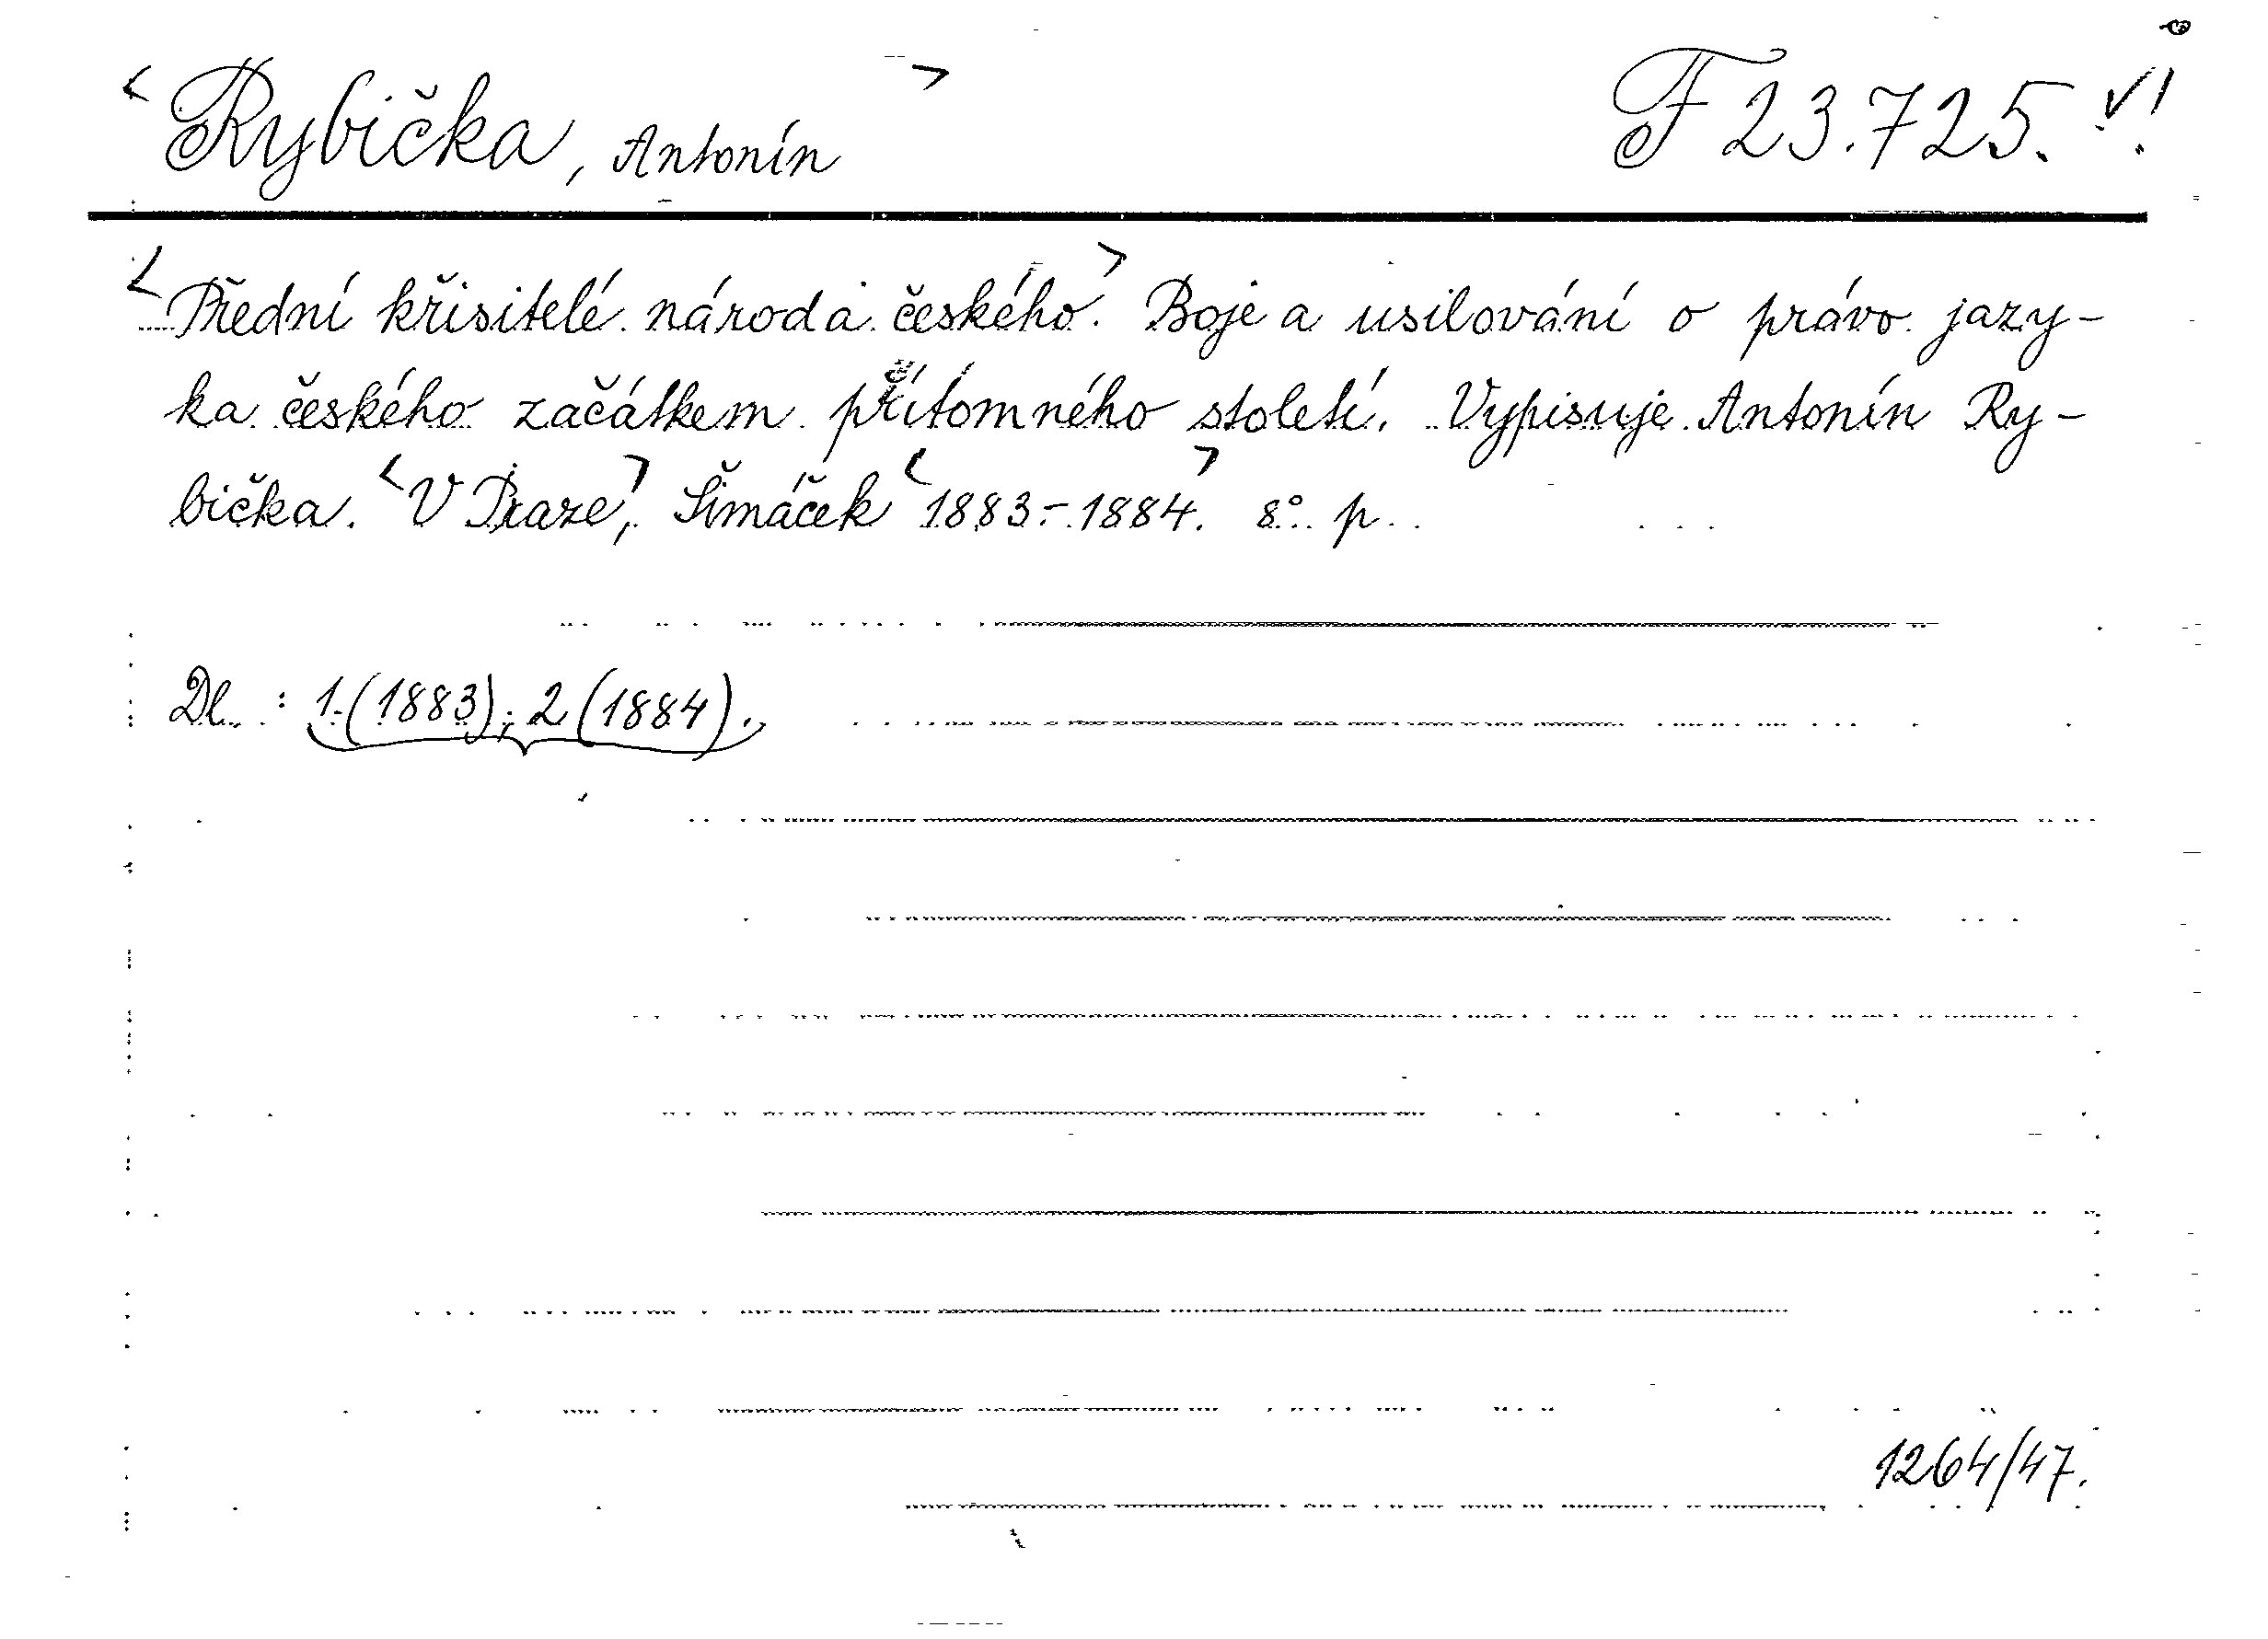 <Rybička, Antonín> F 23.725. √!
<Přední křisitelé národa českého.> Boje a usilování o právo jazy-
ka českého začátkem přítomného století. Vypisuje Antonín Ry-
bička. <V Praze,> Šimáček <1883.-1884.> 8° p.
Dl. : 1.(1883); 2(1884).
1264/47.